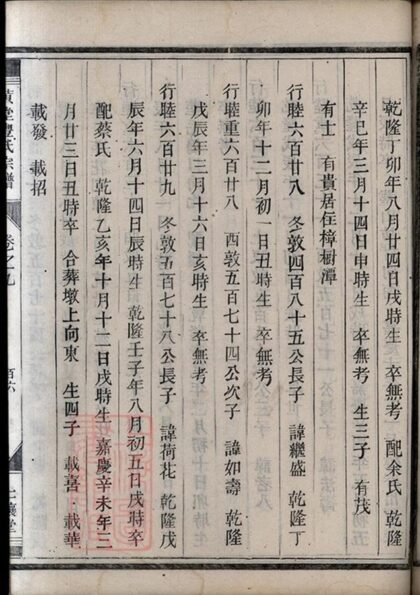 乾隆丁卯年八月廿四日戌時生 卒無考 配余氏 乾隆
辛巳年三月十四日申時生 卒無考 生三子 有茂
有士 有貴居住樟樹潭
行睦六百廿八 冬敦四百八十五公長子 諱繼盛 乾隆丁
卯年十二月初一日丑時生 卒無考
行睦重六百廿八 西敦五百七十四公次子 諱如壽 乾隆
戊辰年三月十六日亥時生 卒無考
行睦六百廿九 冬敦五百七十八公長子 諱荷花 乾隆戊
辰年六月十四日辰時生 乾隆壬子年八月初五日戌時卒
配蔡氏 乾隆乙亥年十月十二日戌時生 嘉慶辛未年三
月廿三日丑時卒 合葬墩上向東 生四子 載喜 載華
載發 載招
氏宗譜
卷之九
百六